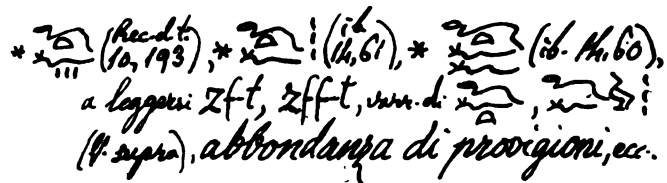 * (Rec. d. t. 10, 193), * (ib. 14, 61), * (ib. 14, 60),
a leggersi zf-t, zff-t, varr. di ,
(V. supra), abbondanza di provigioni, ecc.